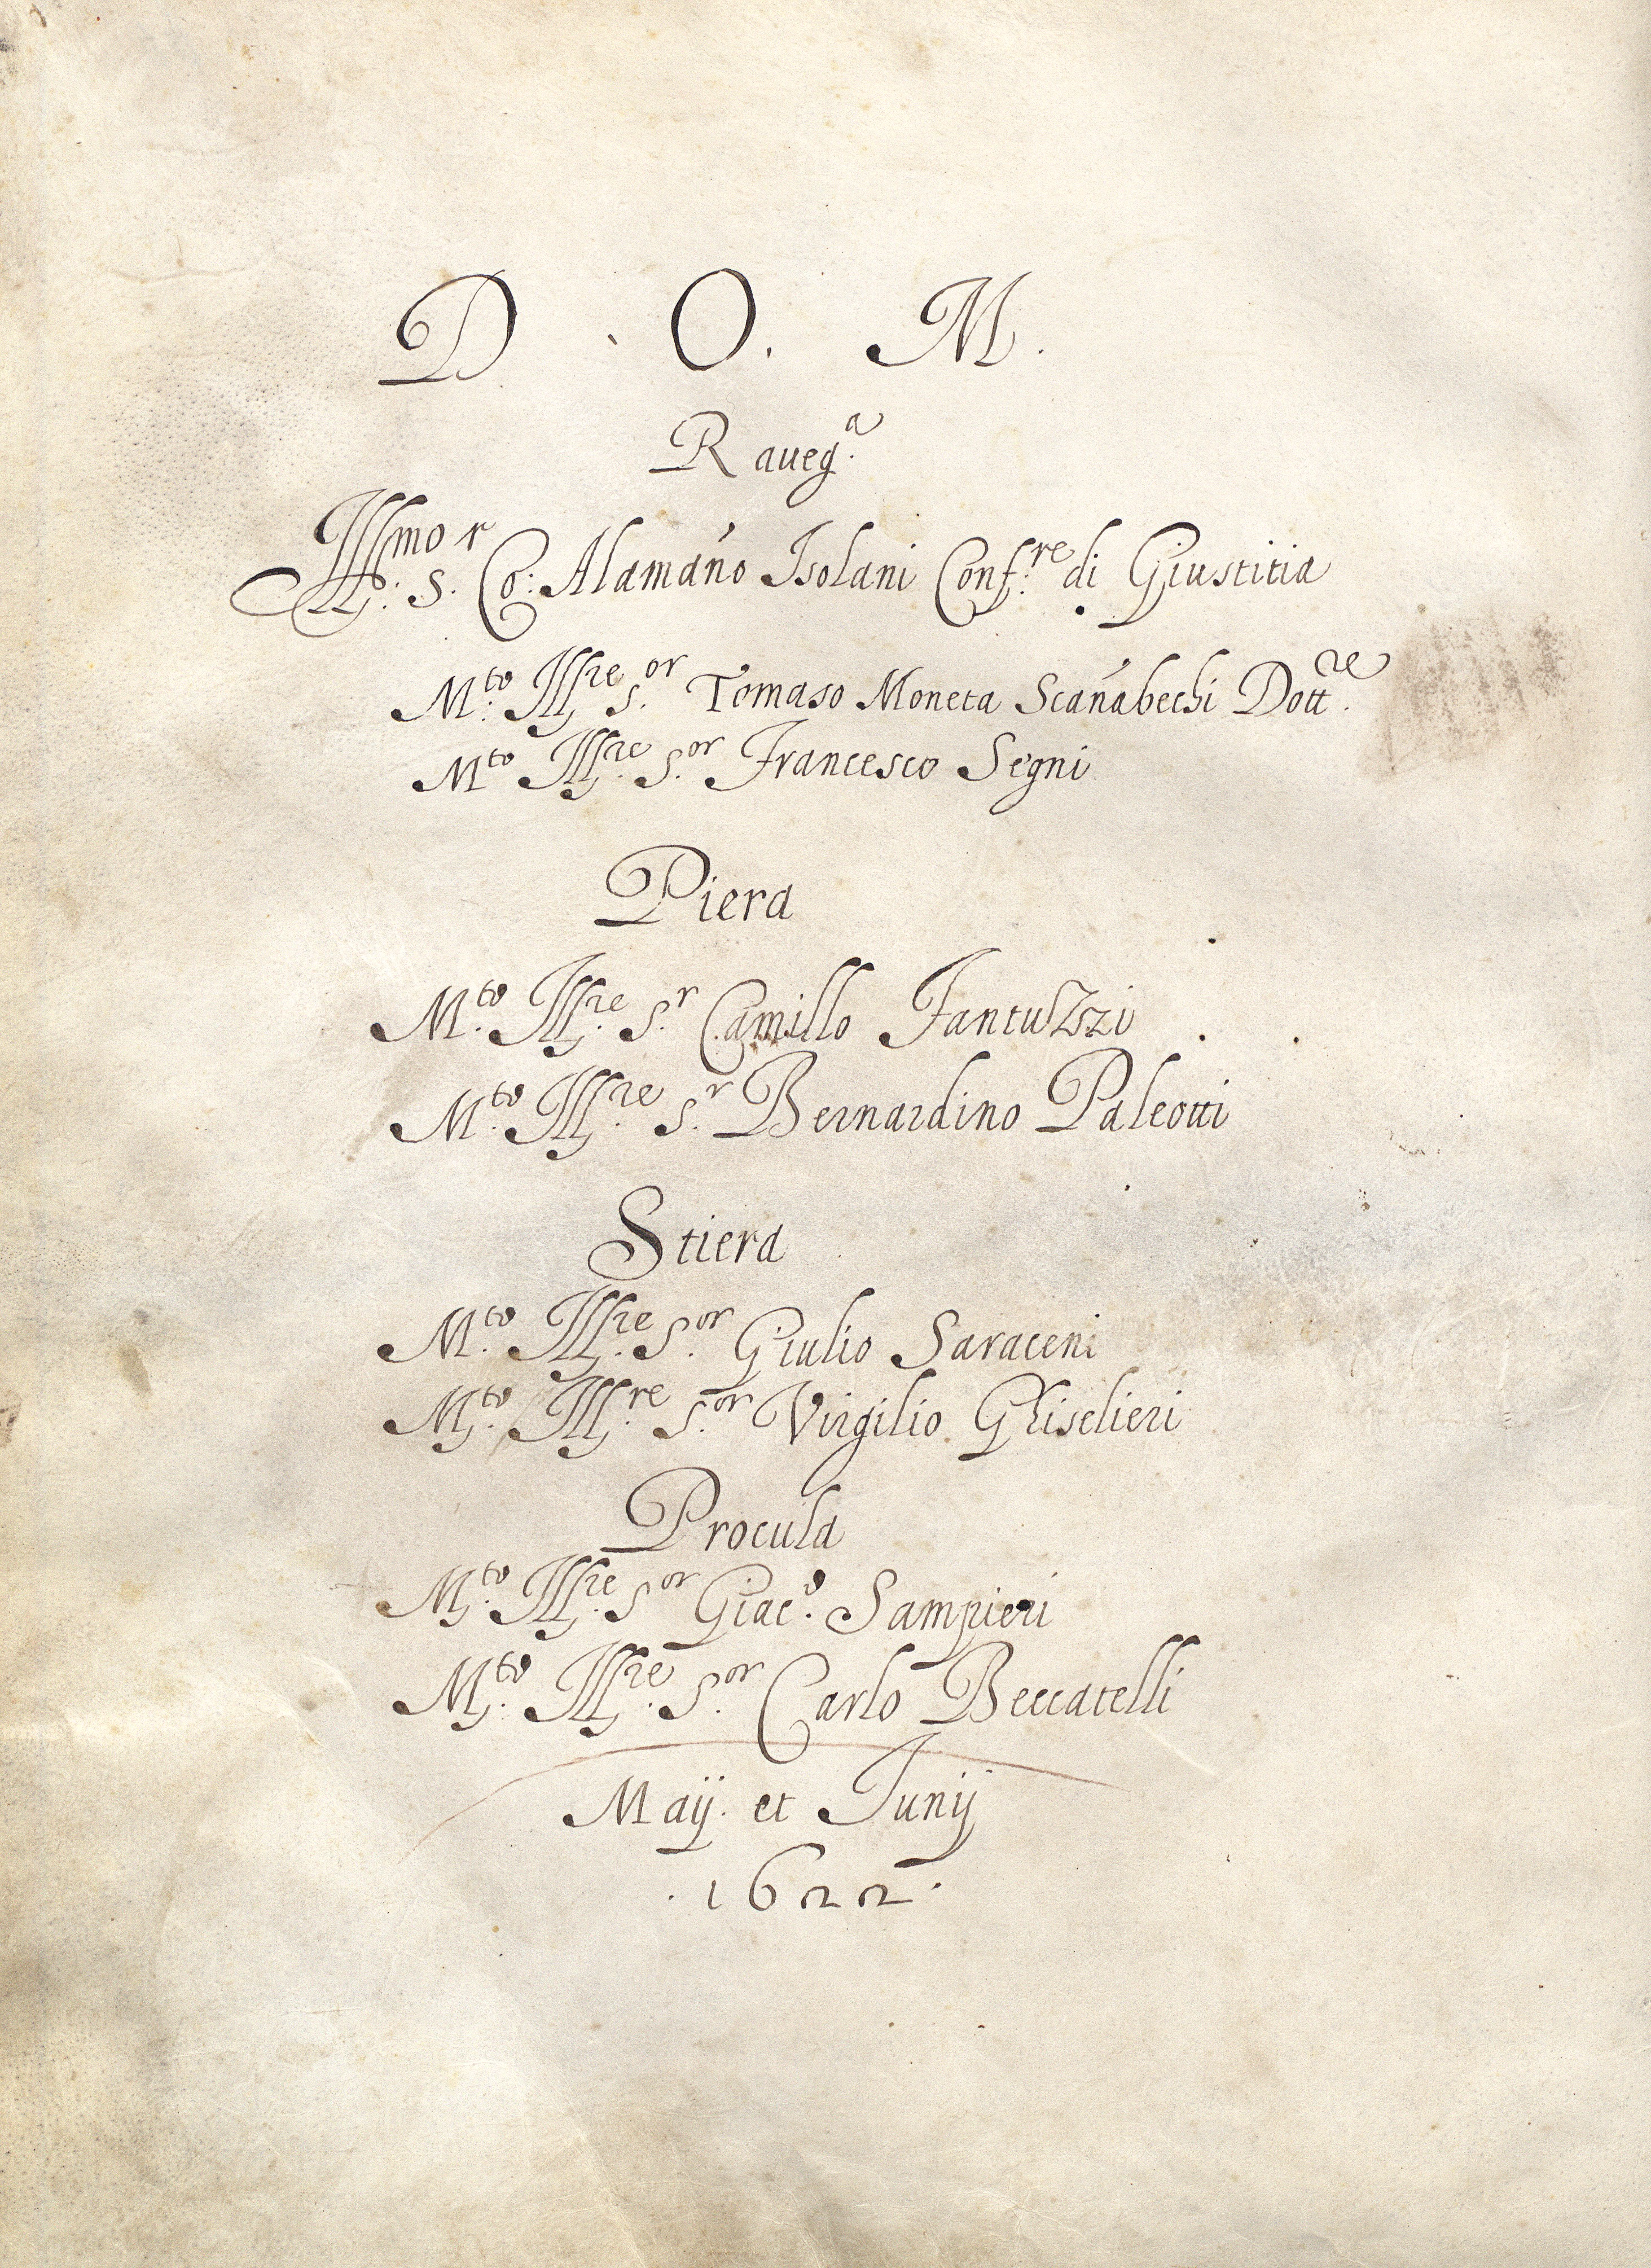 D. O. M.
Raueg.a
Ill.mo S.r Co: Alamáno Isolani Conf.re di Giustitia
M.to Ill.re S.or Tomaso Moneta Scanábechi Dott.re
M.to Ill.re S.or Francesco Segni
Piera
M.to Ill.re S.r Camillo Fantuzzi
M.to Ill.re S.r Bernardino Paleotti
Stiera
M.to Ill.re S.or Giulio Saraceni
M.to Ill.re S.or Virgilio Ghiselieri
Procula
M.to Ill.re S.or Giac.o Sampieri
M.to Ill.re S.or Carlo Beccatelli
Maij. et Junij
.1622.